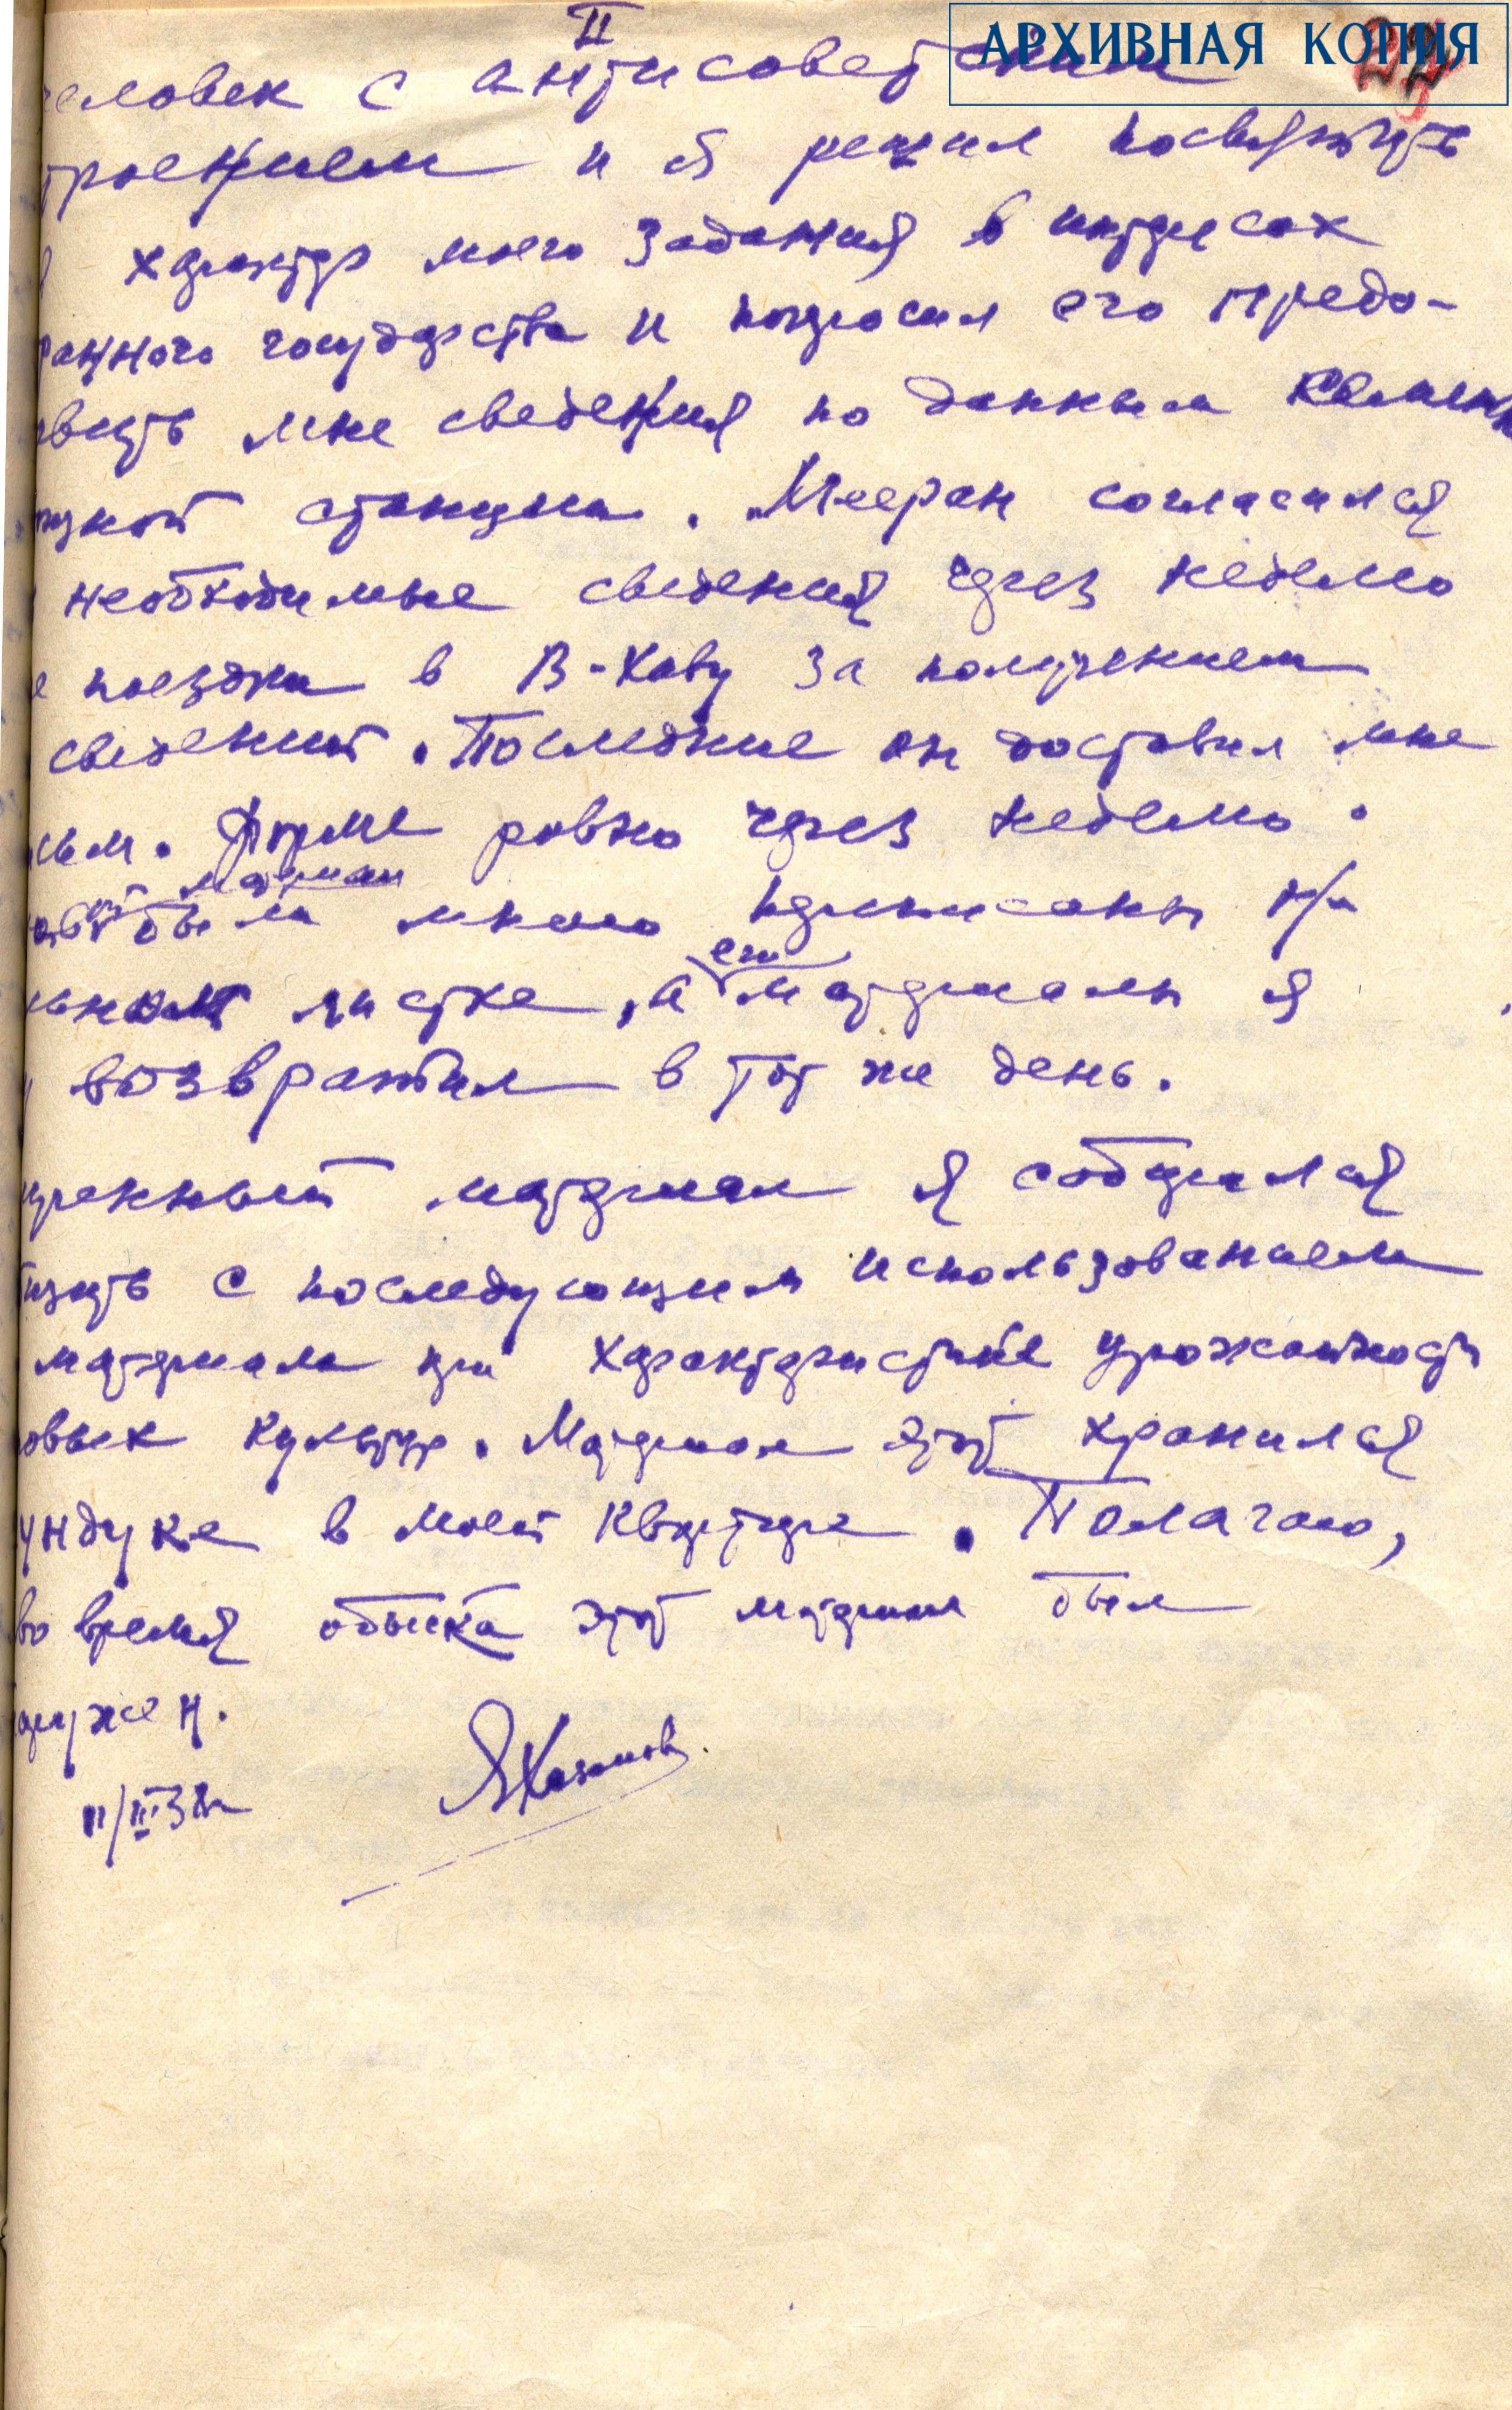 II
АРХИВНАЯ КОПИЯ
еловек с антисоветским
троением и я решил посвятить
характер моего задания в интересах
ранного государства и попросил его предо-
вить мне сведения по данным
станции. Мееран согласился
необходимые сведения через неделю
е поездки в В-Хаву за получением
сведений. Последние он доставил мне
ьм. форме ровно через неделю.
материал
были мною переписаны на
листке, а его материалы я
возвратил в тот же день.
ученный материал я собирался
с последующим использованием
материала при характеристике урожайности
овых культур. Материал этот хранился
ундуке в моей квартире. Полагаю,
во время обыска этот материал был
аружен.
11/III 38г